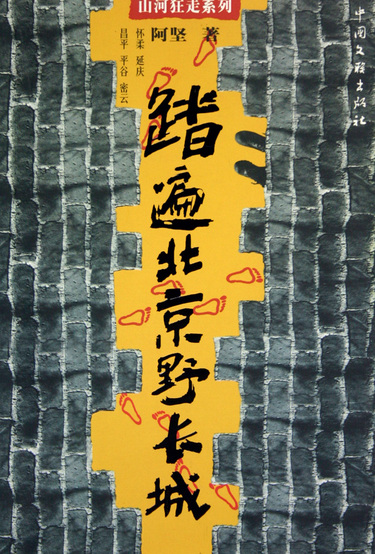 山河狂走系列
阿坚 著
怀柔 延庆
昌平 平谷 密云
踏遍北京野长城
中国文联出版社